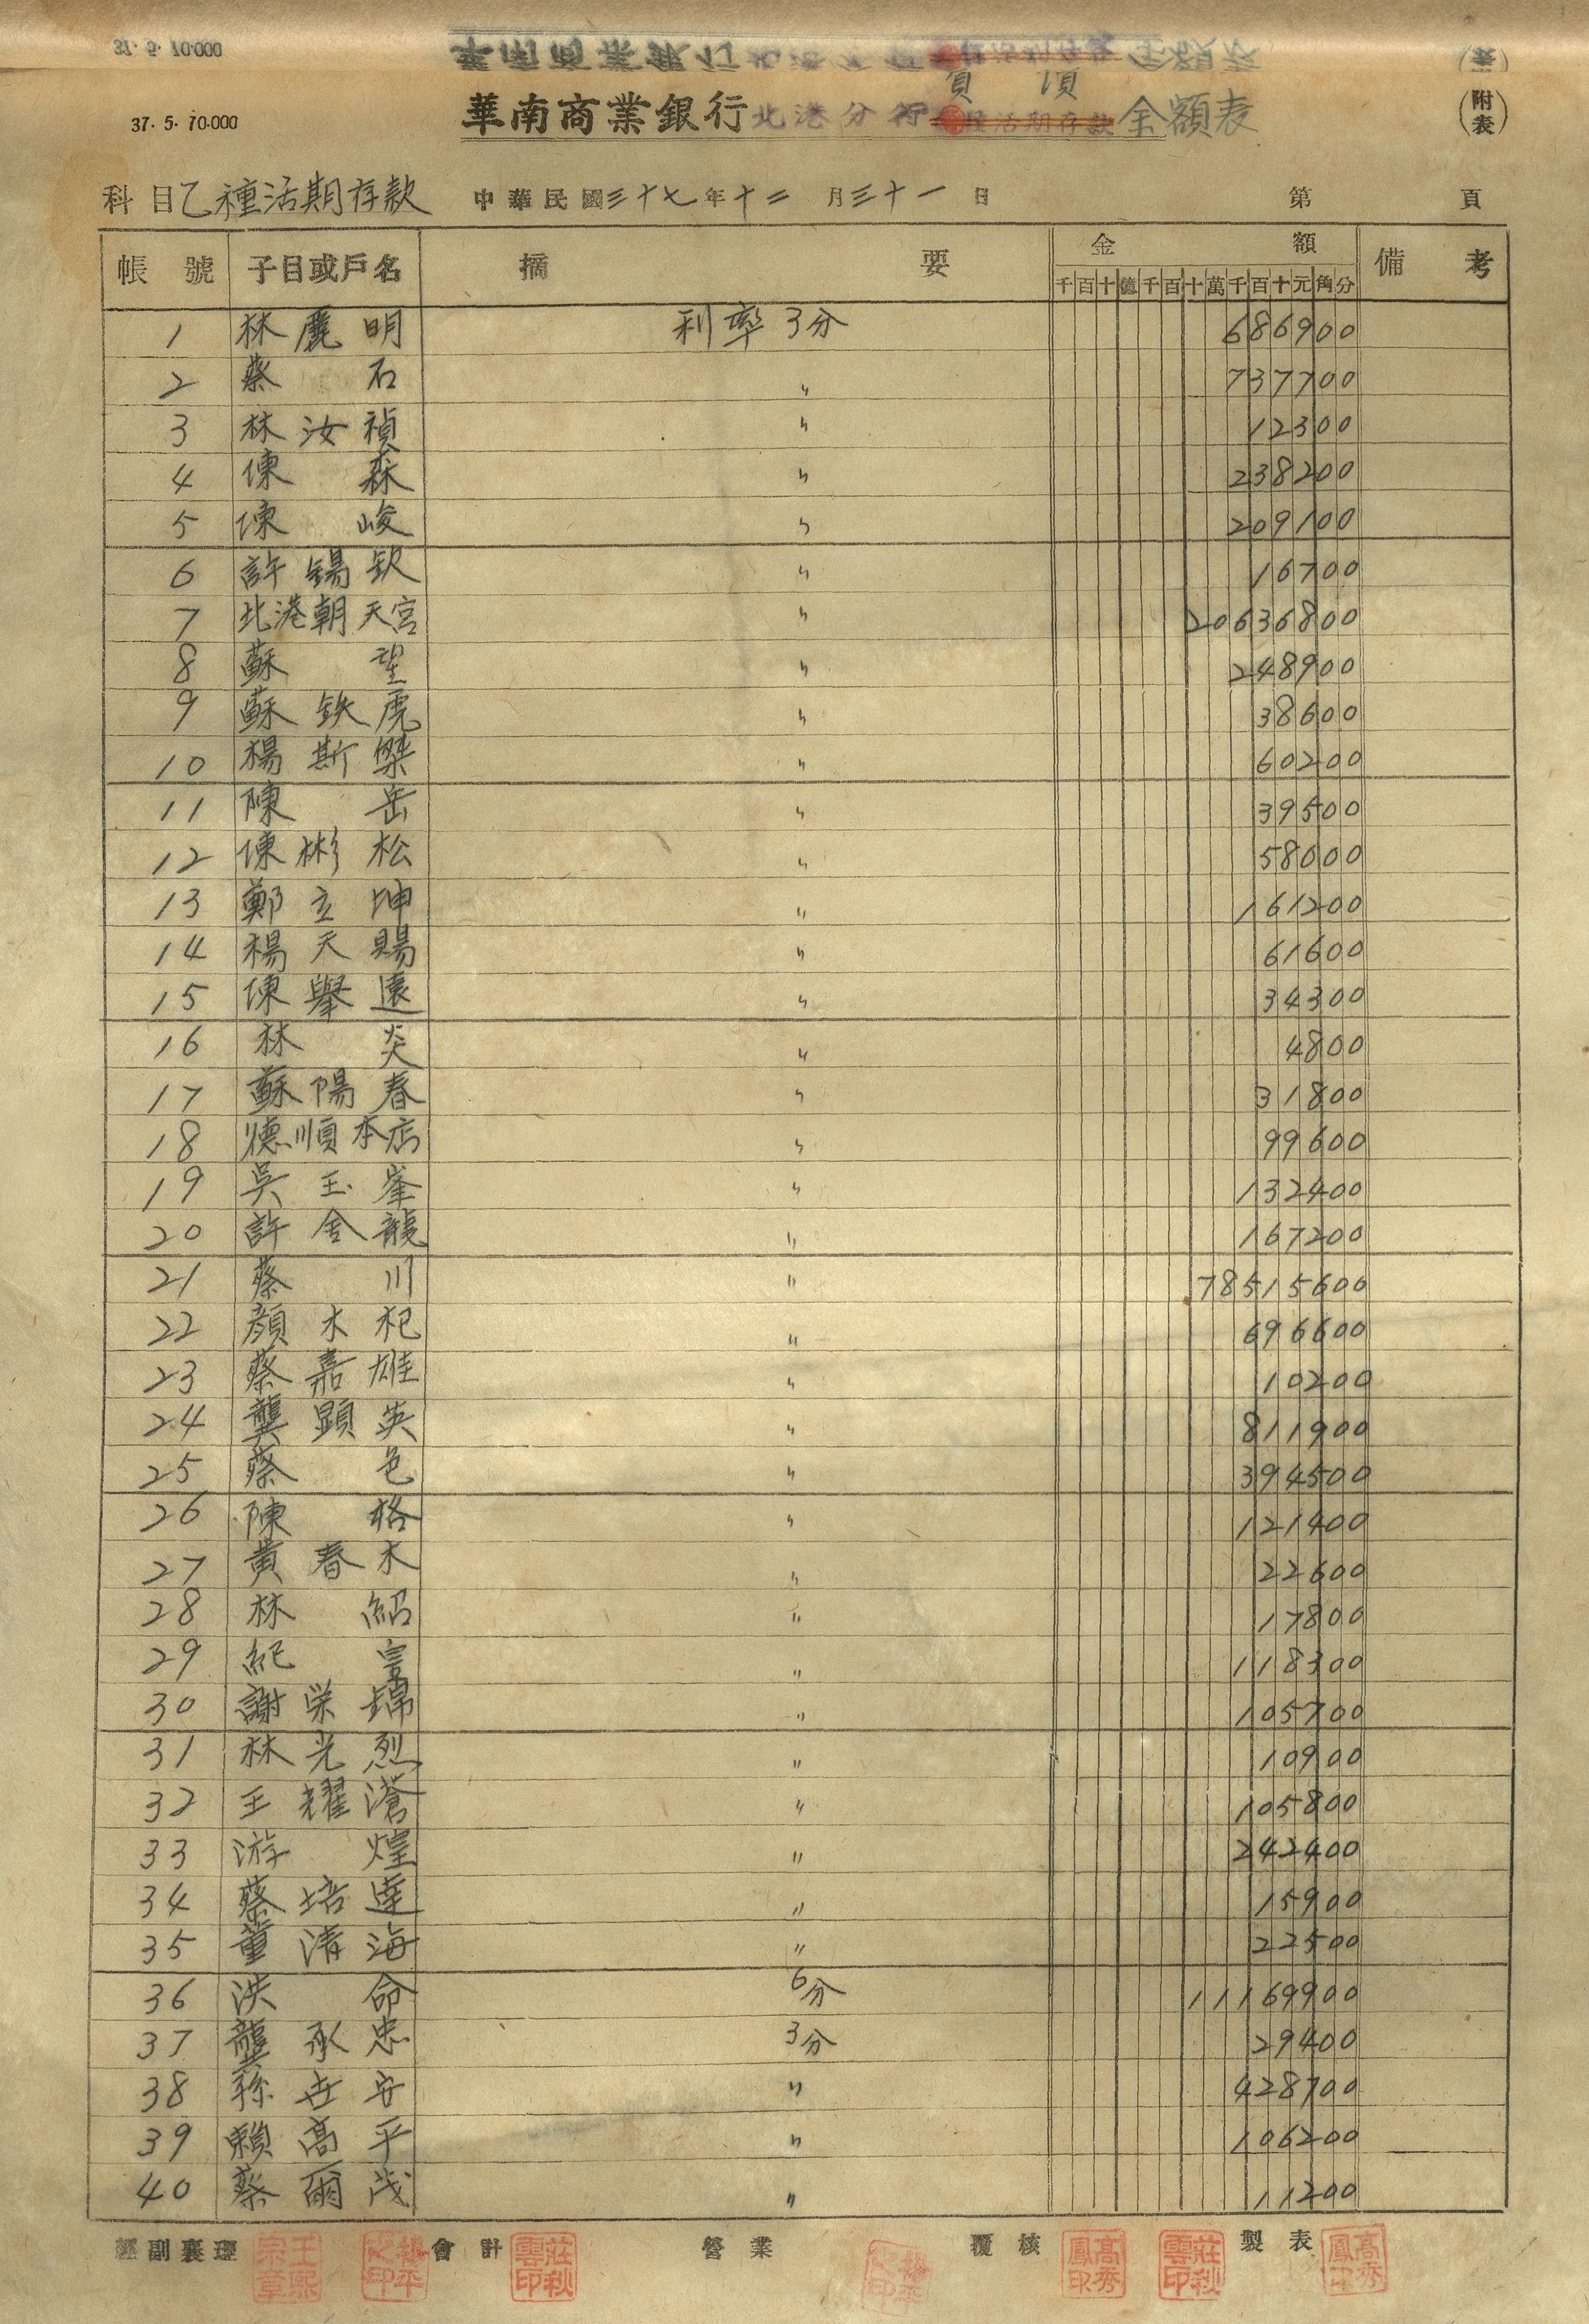 37. 5. 70.000
華南商業銀行北港分行負債金額表
(附表)
科目乙種活期存款 中華民國三十七年十二月三十一日 第 頁
帳號 子目或戶名 摘要 金額 備考
千百十億千百十萬千百十元角分
1 林麗明 利率3分 686900
2 蔡石 〃 737700
3 林汝禎 〃 12300
4 陳森 〃 238200
5 陳峻 〃 209100
6 許錫欽 〃 16700
7 北港朝天宮 〃 20636800
8 蘇望 〃 248900
9 蘇鉄虎 〃 38600
10 楊斯傑 〃 60200
11 陳岳 〃 39500
12 陳彬松 〃 58000
13 鄭玄坤 〃 161200
14 楊天賜 〃 61600
15 陳舉遠 〃 34300
16 林炎 〃 4800
17 蘇陽春 〃 31800
18 德順本店 〃 99600
19 吳玉峯 〃 132400
20 許舍龍 〃 167200
21 蔡川 〃 78515600
22 顏木杞 〃 696600
23 蔡嘉雄 〃 10200
24 龔顕英 〃 811900
25 蔡色 〃 394500
26 陳格 〃 121400
27 黃春木 〃 22600
28 林紹 〃 17800
29 紀 〃 118300
30 謝栄錦 〃 105700
31 林光烈 〃 10900
32 王耀滄 〃 105800
33 游煌 〃 242400
34 蔡培達 〃 15900
35 董清海 〃 22500
36 洪命 6分 11169900
37 龔承忠 3分 29400
38 孫世安 〃 428700
39 賴高平 〃 106200
40 蔡爾茂 〃 11200
經副襄理 會計 莊秋雲印 營業 覆核 高秀鳳印 莊秋雲印 製表 高秀鳳印